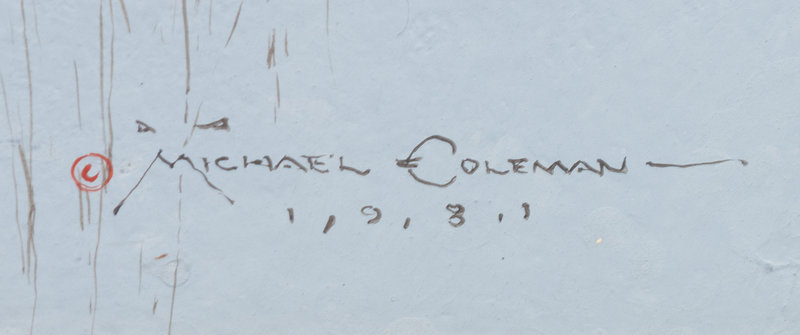 © MICHAEL COLEMAN —
1,9,8,1